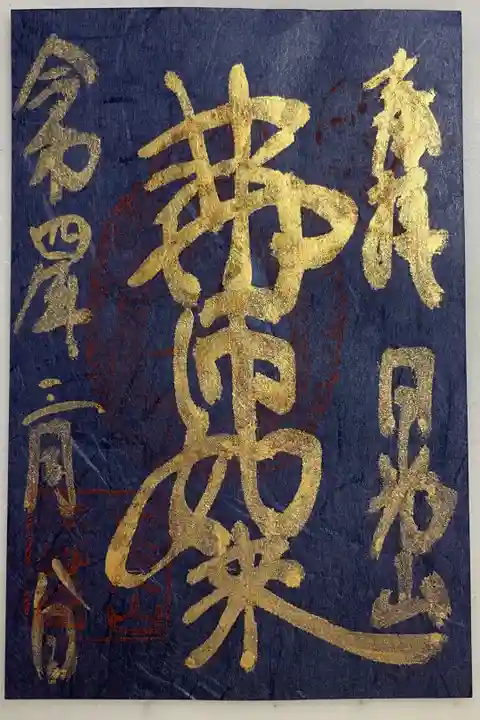 奉拝
薬師如来
令和四年三月八日